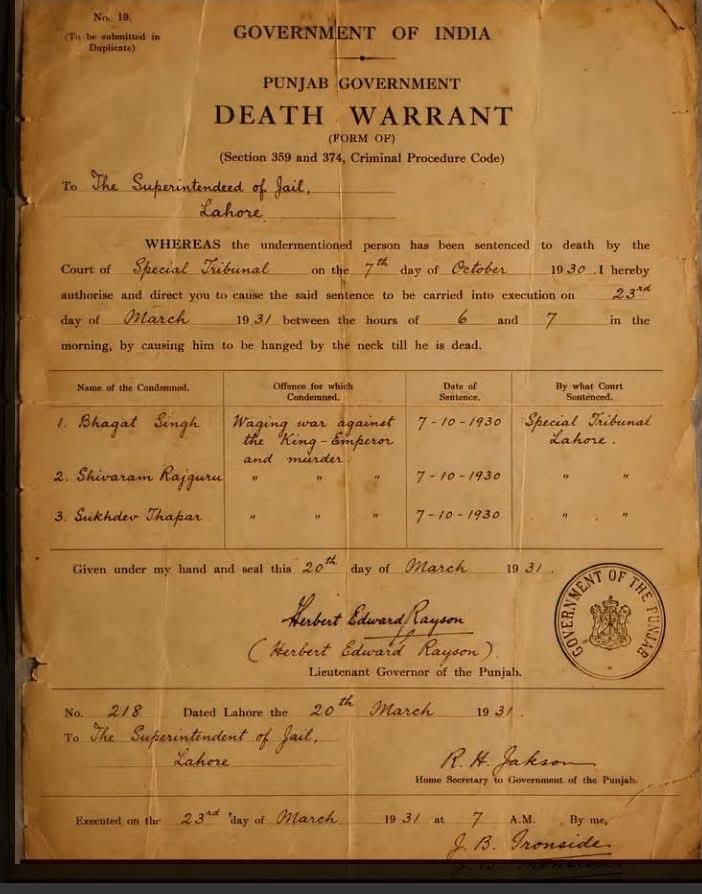 No. 19.
(To be submitted in
Duplicate)
GOVERNMENT OF INDIA
PUNJAB GOVERNMENT
DEATH WARRANT
(FORM OF)
(Section 359 and 374, Criminal Procedure Code)
To The Superintendeed of Jail,
Lahore
WHEREAS the undermentioned person has been sentenced to death by the
Court of Special Tribunal on the 7th day of October 1930. I hereby
authorise and direct you to cause the said sentence to be carried into execution on 23rd
day of March 1931 between the hours of 6 and 7 in the
morning, by causing him to be hanged by the neck till he is dead.
Name of the Condemned. Offence for which Condemned. Date of Sentence. By what Court Sentenced.
1. Bhagat Singh Waging war against the King-Emperor and murder. 7-10-1930 Special Tribunal Lahore.
2. Shivaram Rajguru " " " 7-10-1930 " "
3. Sukhdev Thapar " " " 7-10-1930 " "
Given under my hand and seal this 20th day of March 1931.
Herbert Edward Rayson
(Herbert Edward Rayson)
Lieutenant Governor of the Punjab.
GOVERNMENT OF THE PUNJAB
No. 218 Dated Lahore the 20th March 1931.
To The Superintendent of Jail,
Lahore
R. H. Jakson
Home Secretary to Government of the Punjab.
Executed on the 23rd day of March 1931 at 7 A.M. By me,
J. B. Ironside